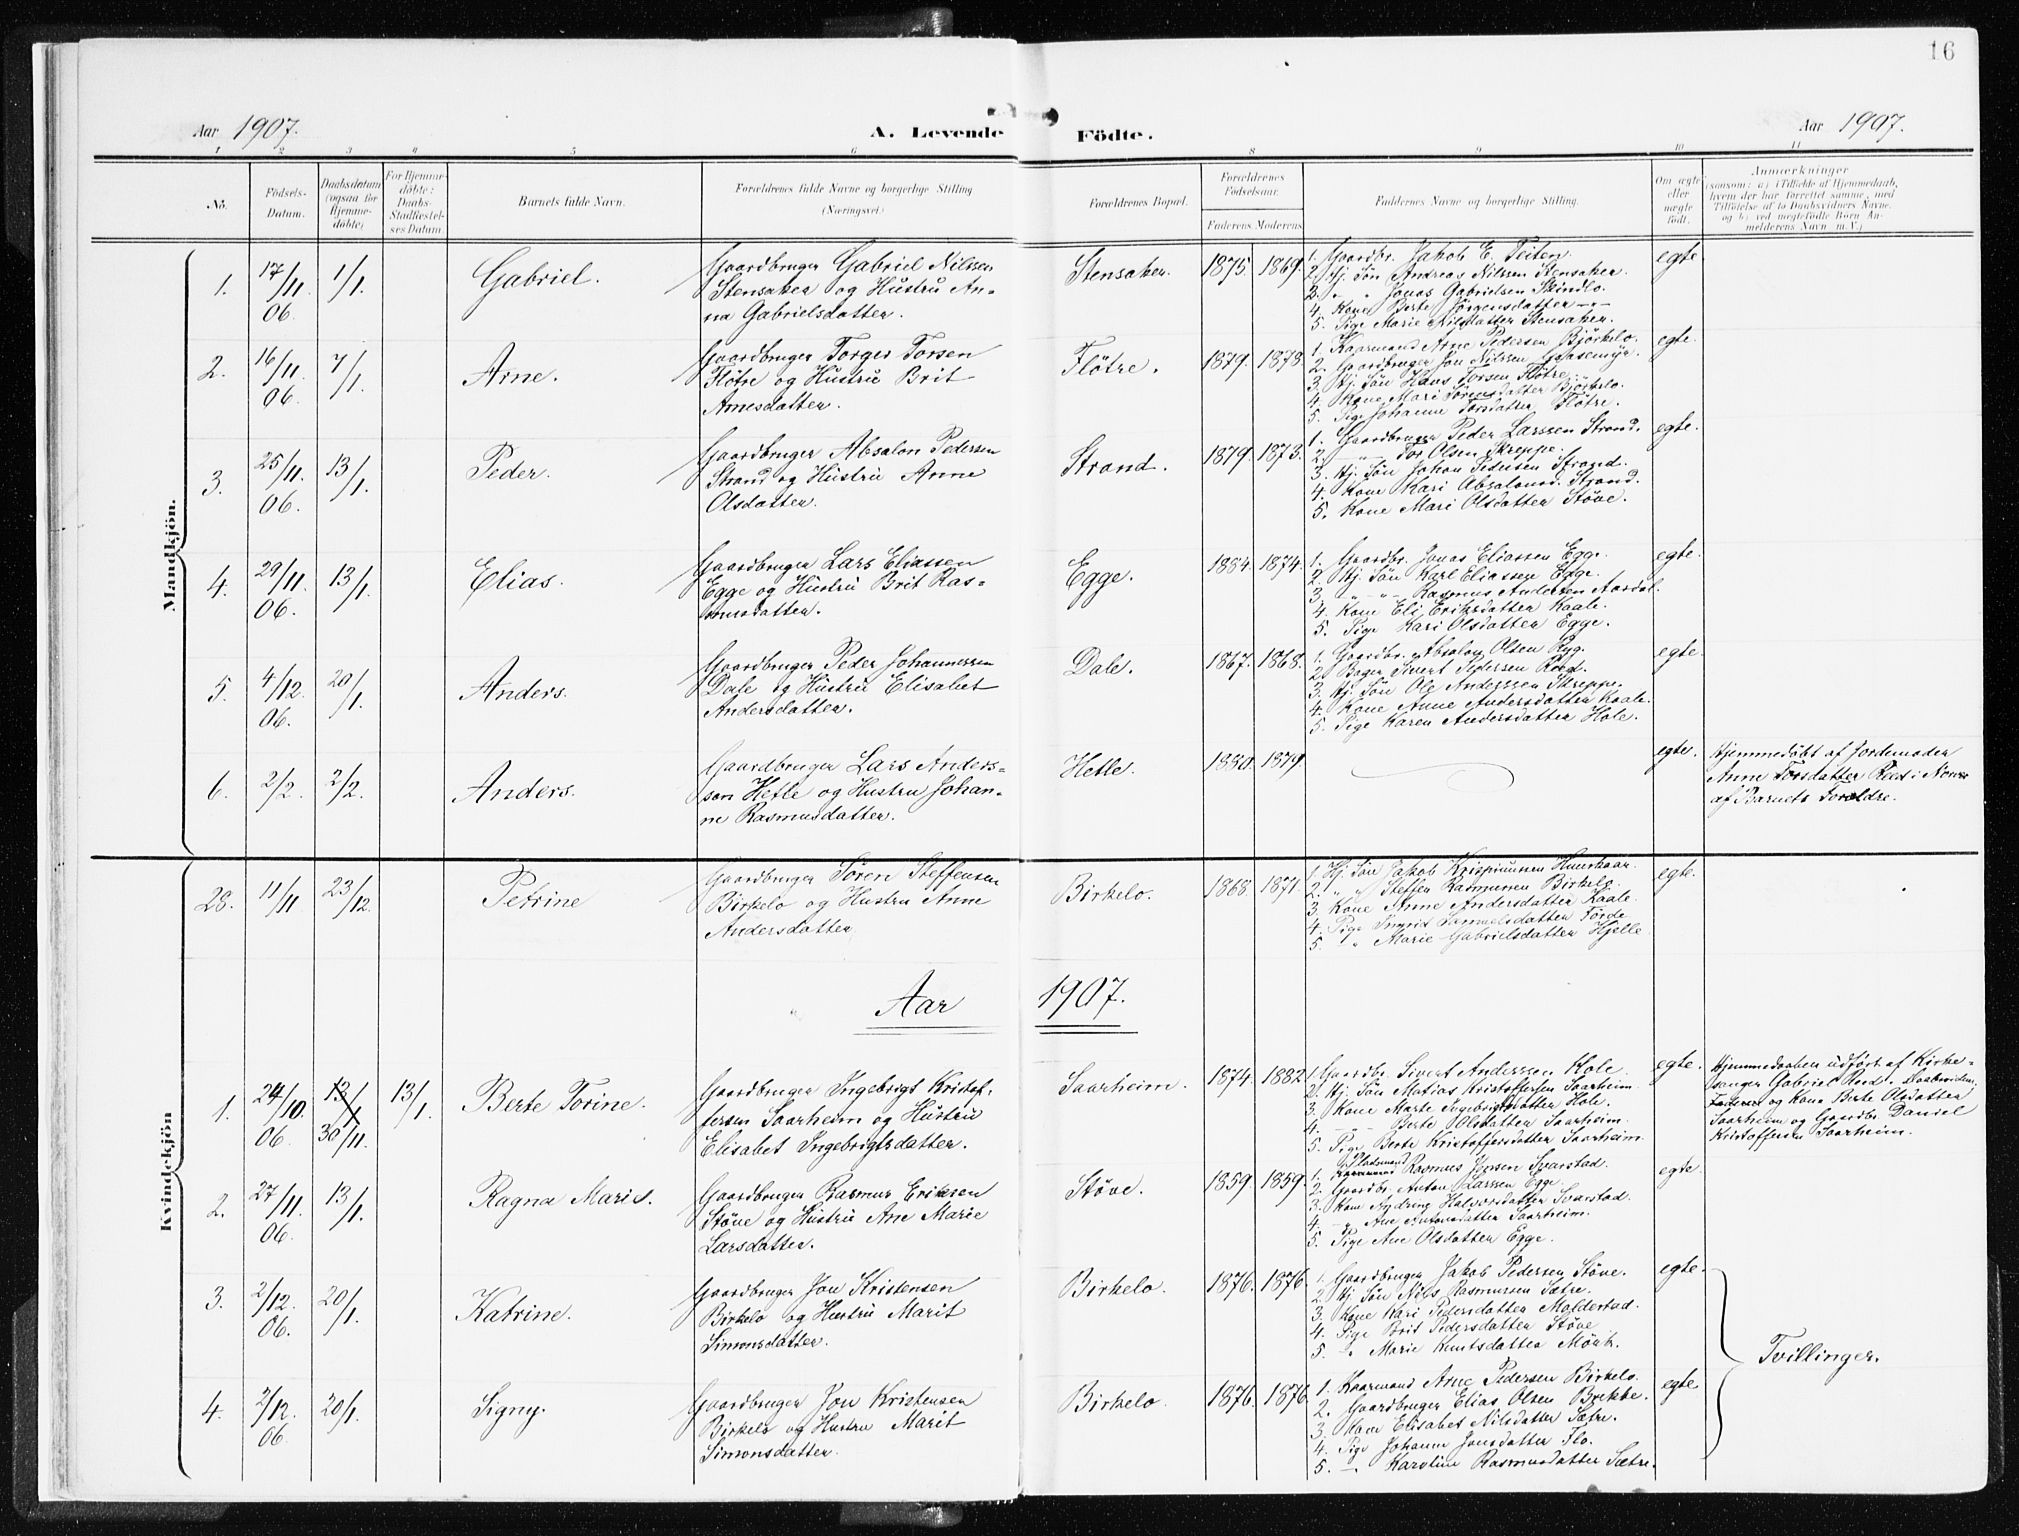 16
Aar 1907. A. Levende Födte. Aar 1907.
1 2 3 4 5 6 8 9 10 11
No. Födsels-Datum. Daabsdatum (ogsaa for Hjemme-döbte) For Hjemme-döbte: Daabs-Stadfæstel-ses Datum. Barnets fulde Navn. Forældrenes fulde Navne og borgerlige Stilling (Næringsvei.) Forældrenes Bopæl. Forældrenes Födselsaar. Faderens. Moderens. Faddernes Navne og borgerlige Stilling. Om ægte eller uægte födt. Anmærkninger
(saasom: a) i Tilfælde af Hjemmedaab,
hvem der har forrettet samme, med
Tilföielse af to Daabsvidners Navne.
og b) ved uægtefödte Börn An-
melderens Navn m. V.)
Mandkjön.
1. 17/11 06. 1/1. Gabriel.
Gaardbruger Gabriel Nilssen
Stensaker og Hustru An-
na Gabrielsdatter.
Stensaker. 1875 1869.
1. Gaardbr. Jakob E. Teiten
2. Hj. Søn Andreas Nilssen Stensaker.
3. " " Jonas Gabrielsen Skindlo.
4. Kone Berte Jørgensdatter -"-
5. Pige Marie Nilsdatter Stensaker.
egte
2. 16/11 06. 7/1. Arne.
Gaardbruger Torger Torsen
Fløtre og Hustru Brit
Arnesdatter.
Fløtre. 1879. 1878.
1. Kaarmand Arne Pedersen Bjørkelo.
2. Gaardbruger Jon Nilssen Gaasemyr.
3. Hj. Søn Hans Torsen Fløtre.
4. Kone Mari Sørensdatter Bjørkelo.
5. Pige Johanne Torsdatter Fløtre.
egte.
3. 25/11 06. 13/1. Peder.
Gaardbruger Absalon Pedersen
Strand og Hustru Anne
Olsdatter.
Strand. 1879. 1873.
1. Gaardbruger Peder Larssen Strand.
2. -"- Tor Olsen Skreppe.
3. Hj. Søn Johan Pedersen Strand.
4. Kone Kari Absalonsd. Strand.
5. Kone Mari Olsdatter Støve.
egte.
4. 29/11 06. 13/1. Elias.
Gaardbruger Lars Eliassen
Egge og Hustru Brit Ras-
musdatter.
Egge. 1884. 1874.
1. Gaardbr. Jonas Eliassen Egge.
2. Hj. Søn Karl Eliassen Egge.
3. -"- -"- Rasmus Andersen Aardal.
4. Kone Eli Eriksdatter Kaale.
5. Pige Kari Olsdatter Egge.
egte.
5. 4/12. 06. 20/1. Anders.
Gaardbruger Peder Johannessen
Dale og Hustru Elisabet
Andersdatter.
Dale. 1867. 1868.
1. Gaardbr. Absalon Olsen Ryg.
2. Bager Sivert Pedersen Reed.
3. Hj. Søn Ole Anderssen Skreppe.
4. Kone Anne Andersdatter Kaale.
5. Pige Karen Andersdatter Hole.
egte.
6. 2/2. 2/2. Anders.
Gaardbruger Lars Anders-
sen Hetle og Hustru Johan-
ne Rasmusdatter.
Hetle. 1880. 1879.
egte.
Hjemmedøbt af Jordemoder
Anne Torsdatter Reed i Nærvær
af Barnets Forældre.
Kvindekjön
28. 11/11 23/12. Petrine
Gaardbruger Søren Steffensen
Birkelo og Hustru Anne
Andersdatter
Birkelo. 1868. 1871.
1. Hj. Søn Jakob Krispinussen
2. " " Steffen Rasmussen Birkelo.
3. Kone Anne Andersdatter Kaale.
4. Pige Ingrid Samuelsdatter Førde
5. " Marie Gabrielsdatter Hjelle
egte.
Aar 1907.
1. 24/10. 06. 13/1 30/11. 13/1. Berte Torine.
Gaardbruger Ingebrigt Kristof-
fersen Saarheim og Hustru
Elisabet Ingebrigtsdatter.
Saarheim. 1874. 1882.
1. Gaardbr. Sivert Anderssen Hole.
2. Hj. Søn Matias Kristoffersen Saarheim.
3. Kone Marte Ingebrigtsdatter Hole.
4. -"- Berte Olsdatter Saarheim.
5. Pige Berte Kristoffersdatter Saarheim.
egte.
Hjemmedaaben udført af Kirke-
sanger Gabriel Reed. Daabsvidner:
Faderen og Kone Berte Olsdatter
Saarheim og Gaardbr. Daniel
Kristoffersen Saarheim.
2. 27/11. 06. 13/1. Ragna Marie.
Gaardbruger Rasmus Eriksen
Støve og Hustru Ane Marie
Larsdatter.
Støve. 1859. 1859.
Pladsmand
1. Rasmus Jensen Svarstad.
2. Gaardbr. Anton Larssen Egge
3. Kone Andrine Halvorsdatter Svarstad.
4. -"- Ane Antonsdatter Saarheim.
5. Pige Ane Olsdatter Egge.
egte.
3. 2/12. 06. 20/1. Katrine.
Gaardbruger Jon Kristensen
Birkelo og Hustru Marit
Simonsdatter.
Birkelo. 1876. 1876.
1. Gaardbruger Jakob Pedersen Støve.
2. Hj. Søn Nils Rasmussen Sætre.
3. Kone Kari Pedersdatter Moldestad.
4. Pige Brit Pedersdatter Støve
5. " Marie Knutsdatter Mörk.
egte.
Tvillinger.
4. 2/12. 06. 20/1. Signy.
Gaardbruger Jon Kristensen
Birkelo og Hustru Marit
Simonsdatter.
Birkelo. 1876. 1876.
1. Kaarmand Arne Pedersen Birkelo.
2. Gaardbruger Elias Olsen Brekke.
3. Kone Elisabet Nilsdatter Sætre.
4. Pige Johanne Jonsdatter Flo.
5. -"- Karoline Rasmusdatter Sætre.
egte